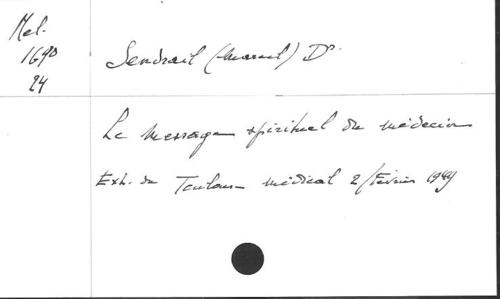 Mel.
1690
24
Sendrail (Marcel) Dr.
Le message spirituel du médecin
Ext. du Toulouse médical 2/février 1949